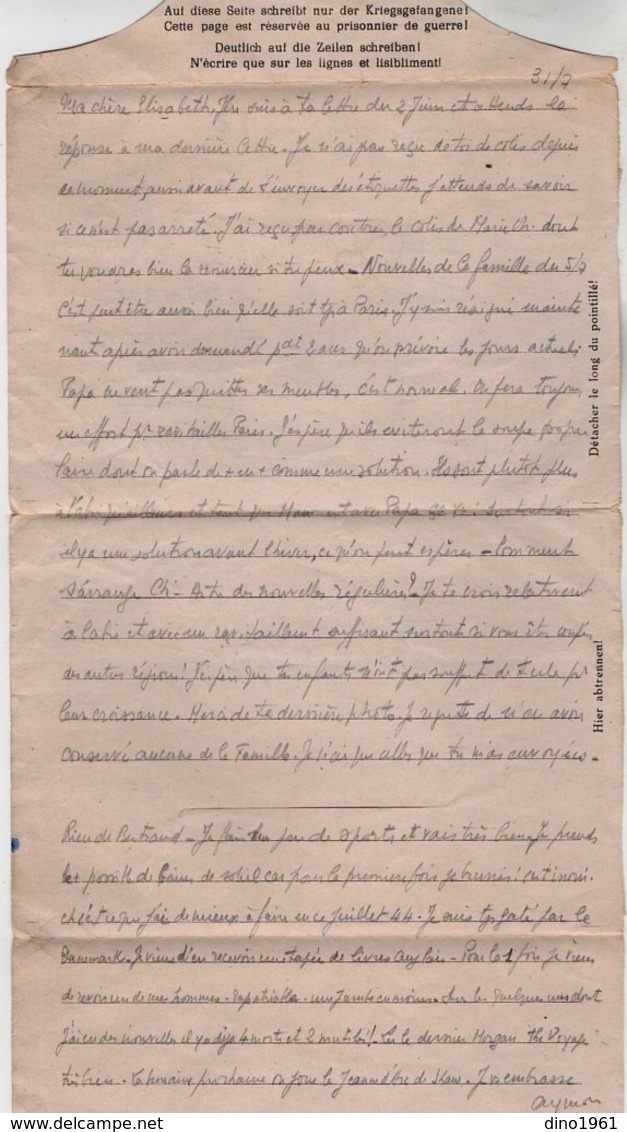 Auf diese Seite schreibt nur der Kriegsgefangene!
Cette page est réservée au prisonnier de guerre!
Deutlich auf die Zeilen schreiben!
N'écrire que sur les lignes et lisiblement!
31/7
Ma chère Elisabeth, J'en suis à ta lettre du 2 Juin et attends la
réponse à ma dernière lettre. Je n'ai pas reçu de toi de colis depuis
ce moment, aussi avant de t'envoyer des étiquettes j'attends de savoir
si ce n'est pas arrêté. J'ai reçu par contre le colis de Marie Ch. dont
tu voudras bien la remercier si tu peux. Nouvelles de la famille du 5/7
C'est peut être aussi bien qu'elle soit à Paris. J'y suis résigné mainte
nant après avoir demandé pdt 2 ans qu'on prévoie les jours actuels
Papa ne veut pas quitter ses meubles, c'est normal. On fera toujours
un effort pr ravitailler Paris. J'espère qu'ils éviteront la soupe popu
laire dont on parle de + en + comme une solution. Ils sont plutôt plus
à l'abri qu'ailleurs et tant que Mam est avec Papa ça va! surtout si
il y a une solution avant l'hiver, ce qu'on peut espérer - Comment
s'arrange Ch - As tu des nouvelles régulières? - Je te crois relativement
à l'abri et avec un ravitaillement suffisant surtout si vous êtes coupés
des autres régions! J'espère que tes enfants n'ont pas souffert de tt cela pr
leur croissance. Merci de ta dernière photo. Je regrette de n'en avoir
conservé aucune de la Famille. Je n'ai que celles que tu m'as envoyées -
Rien de Bertrand - Je fais un peu de sports et vais très bien. Je prends
le + possible de bains de soleil car pour la première fois je brunis!
c'est ce que j'ai de mieux à faire en ce juillet 44. Je suis gâté par le
Danemark. Je viens d'en recevoir une tapée de livres anglais - Pour la 1 fois je viens
de revoir un de mes hommes - rapatriable - une jambe en moins. Sur les quelques uns dont
j'ai eu des nouvelles il y a déjà 4 morts et 2 mutilés! Lu le dernier Morgan The Voyage
très bien. La semaine prochaine on joue le Jeanne d'Arc de Shaw. Je vs embrasse
Aymon
Détacher le long du pointillé!
Hier abtrennen!
www.delcampe.net
dino1961